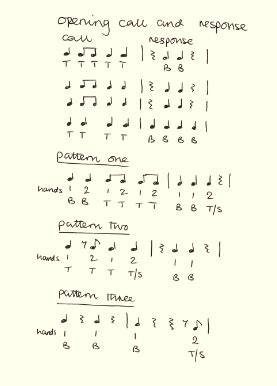 opening call and response
call response
T T T T T B B
T T T T B B B B
pattern one
hands 1 2 1 2 1 2 1 1 2
B B T T T T B B T/S
pattern two
hands 1 2 1 2 1 1
T T T T/S B B
pattern three
hands 1 1 1 2
B B B T/S